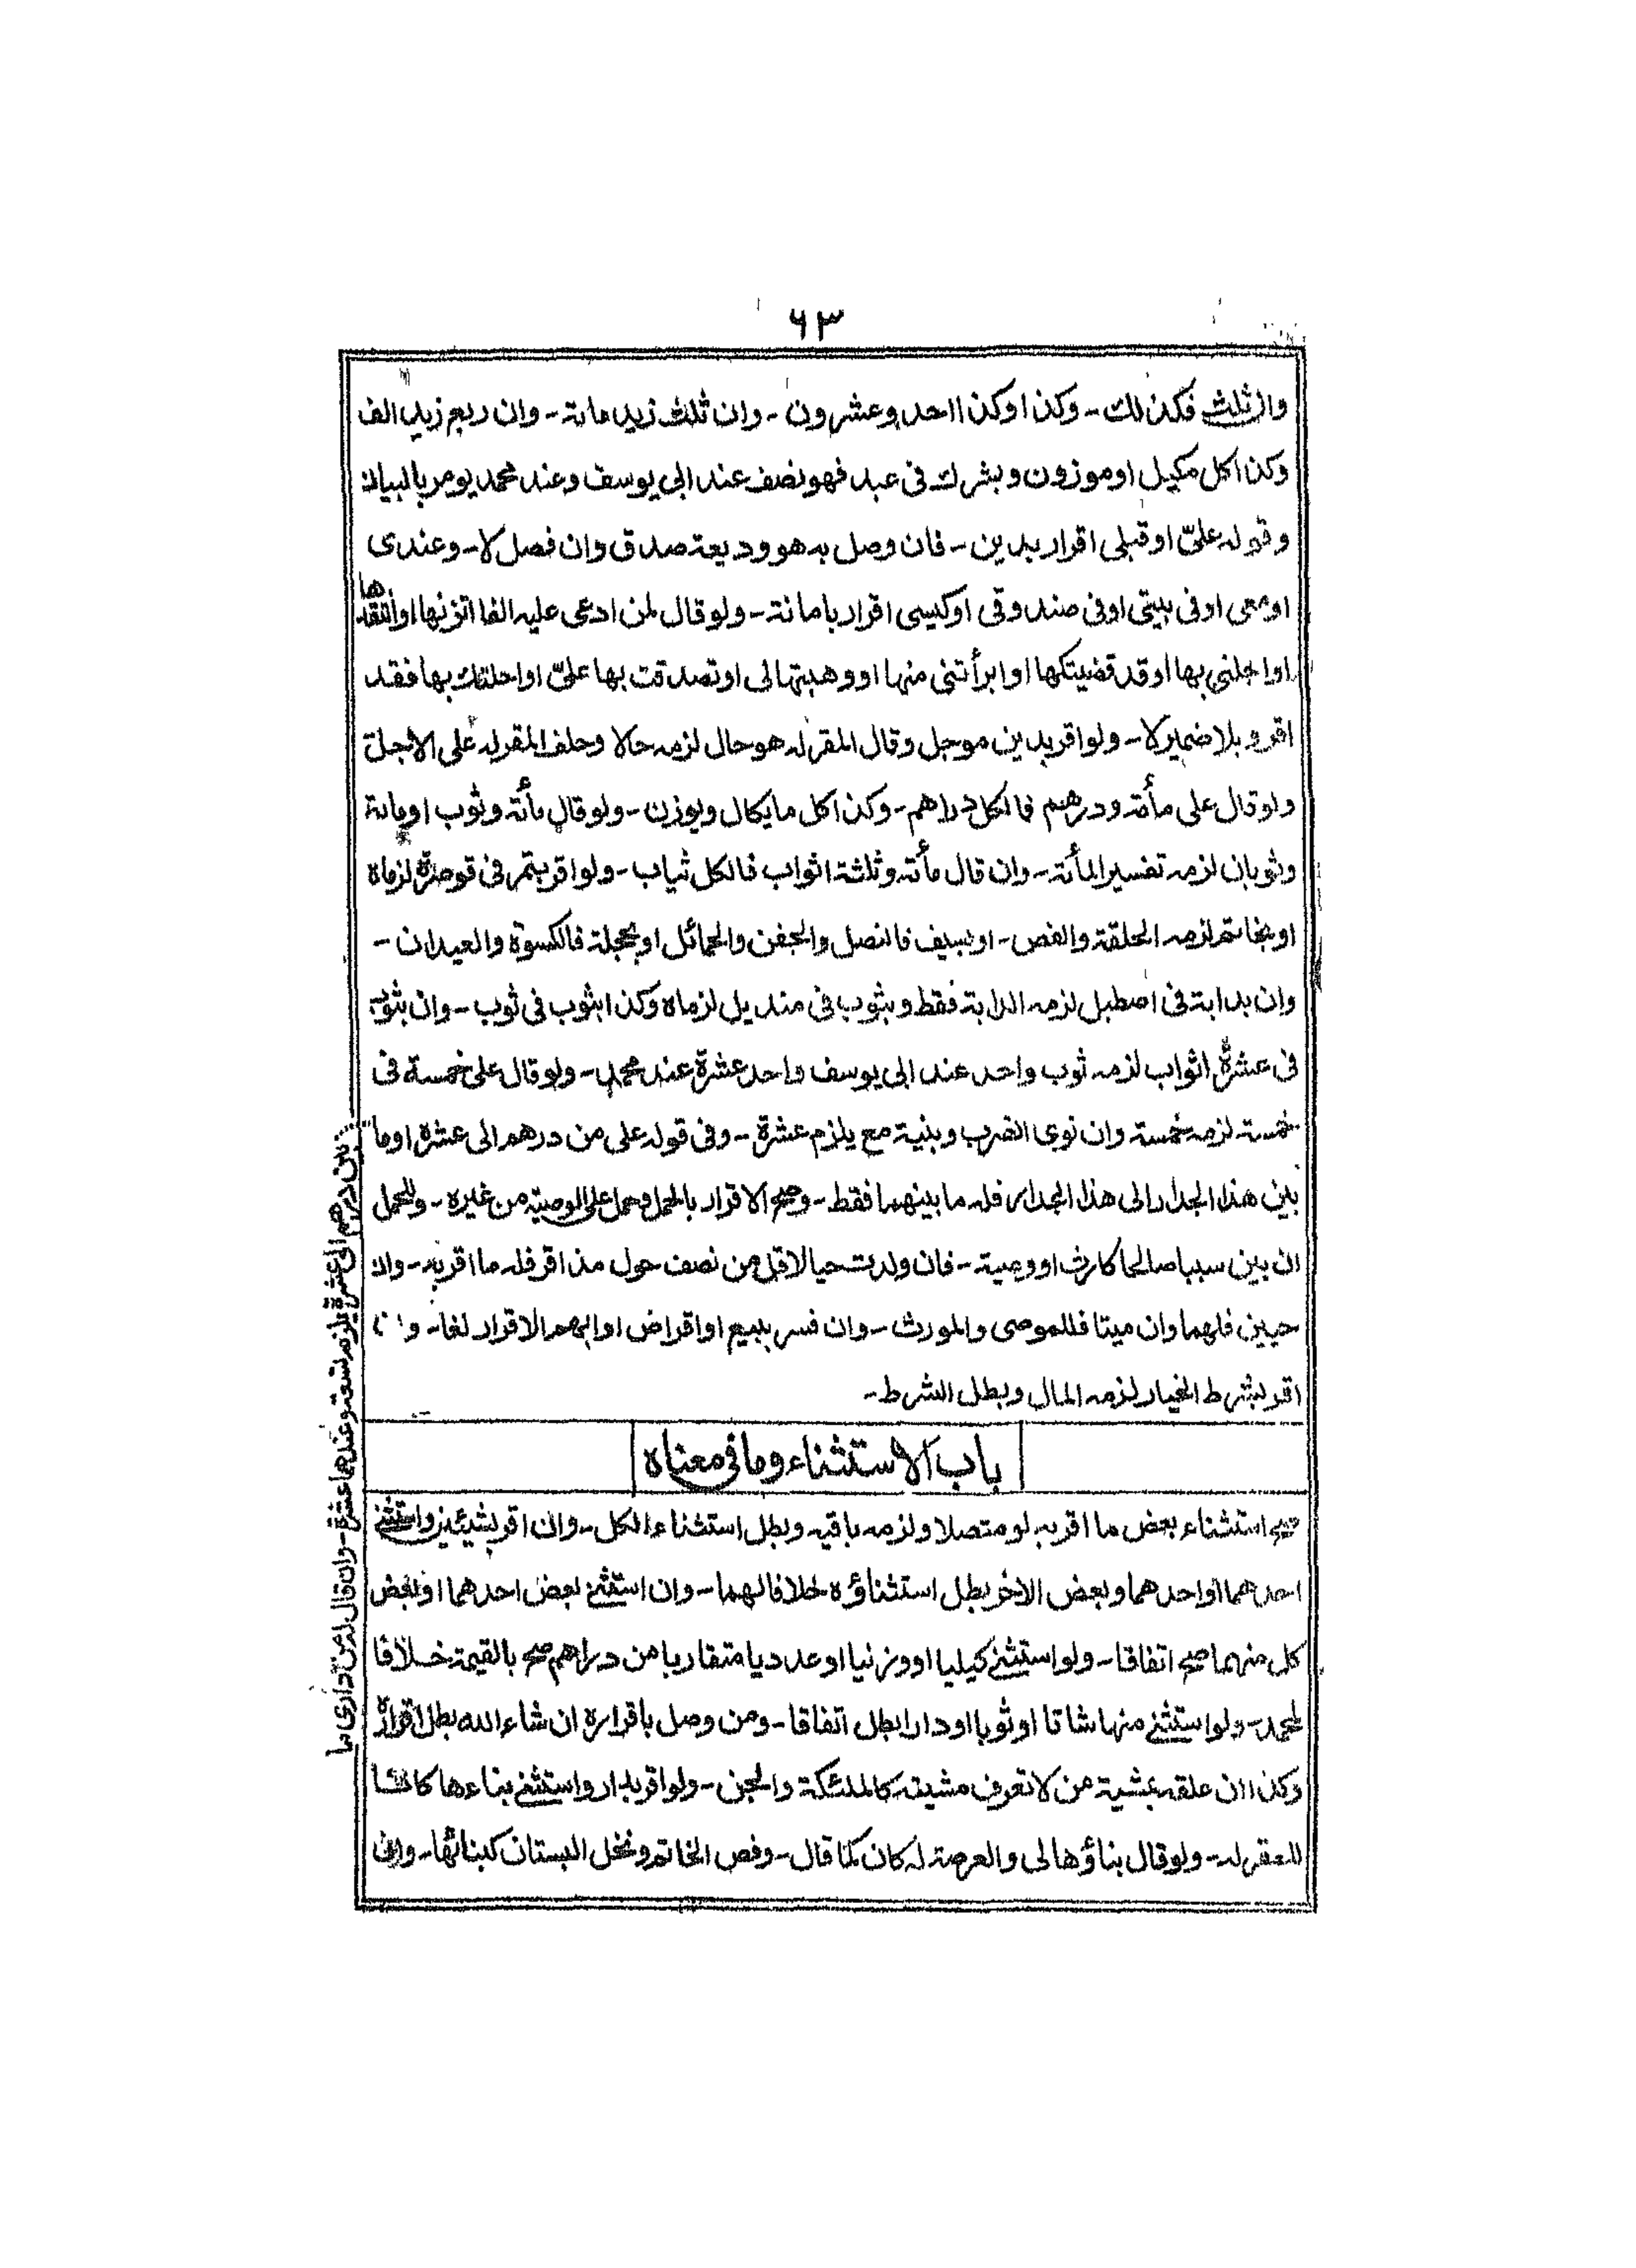 ٦٣
وان ثلث فكذلك - وكذا وكذا احد وعشرون - وان ثلث زيد مائة - وان ربع زيد الف
وكذا كل مكيل او موزون وبشرك فى عبد فهو نصف عند ابى يوسف وعند محمد يومر بالبيان
وقوله علىّ او قبلى اقرار بدين - فان وصل به هو وديعة صدق وان فصل لا - وعندى
او معى او فى بيتى او فى صندوقى او كيسى اقرار بامانة - ولو قال لمن ادعى عليه الفا اتزنها او انتقدها
او اجلنى بها او قد قضيتكها او ابرأتنى منها او وهبتها لى او تصدقت بها علىّ او احلتك بها فقد
اقر وبلا ضمير لا - ولو اقر بدين موجل وقال المقر له هو حال لزمه حالا وحلف المقر له على الاجل
ولو قال على مأة ودرهم فالكل دراهم - وكذا كل ما يكال ويوزن - ولو قال مأتة وثوب او مائة
وثوبان لزمه تفسير المأتة - وان قال مأتة وثلثة اثواب فالكل ثياب - ولو اقر بتمر فى قوصرة لزماه
او بخاتم لزمه الحلقة والفص - او بسيف فالنصل والجفن والحمائل او بحجلة فالكسوة والعيدان -
وان بدابة فى اصطبل لزمه الدابة فقط وبثوب فى منديل لزماه وكذا بثوب فى ثوب - وان بثوب
فى عشرة اثواب لزمه ثوب واحد عند ابى يوسف واحد عشرة عند محمد - ولو قال على خمسة فى
خمسة لزمه خمسة وان نوى الضرب وبنية مع يلزم عشرة - وفى قوله على من درهم الى عشرة او ما
بين درهم الى عشرة يلزمه تسعة وعندهما عشرة - وان قال له من دارى ما
بين هذا الجدار الى هذا الجدار فله ما بينهما فقط - وصح الاقرار بالحمل وحمل على الوصية من غيره - وللحمل
ان بين سببا صالحا كارث او وصية - فان ولدت حيا لاقل من نصف حول مذ اقر فله ما اقر به - وان
حيين فلهما وان ميتا فللموصى والمورث - وان فسر ببيع او اقراض او ابهم الاقرار لغا - وان
اقر بشرط الخيار لزمه المال وبطل الشرط -
باب الاستثناء وما فى معناه
صح استثناء بعض ما اقر به لو متصلا ولزمه باقيه وبطل استثناء الكل - وان اقر بشيئين واستثنى
احدهما او احدهما وبعض الاخر بطل استثناؤه خلافا لهما - وان استثنى بعض احدهما او بعض
كل منهما صح اتفاقا - ولو استثنى كيليا او وزنيا او عدديا متقاربا من دراهم صح بالقيمة خلافا
لمحمد - ولو استثنى منها شاتا او ثوبا او دارا بطل اتفاقا - ومن وصل باقراره ان شاء الله بطل اقراره
وكذا ان علقه بمشية من لا تعرف مشيته كالملئكة والجن - ولو اقر بدار واستثنى بناءها كانتا
للمقر له - ولو قال بناؤها لى والعرصة له كان كما قال - وفص الخاتم ونخل البستان كبنائها - وان